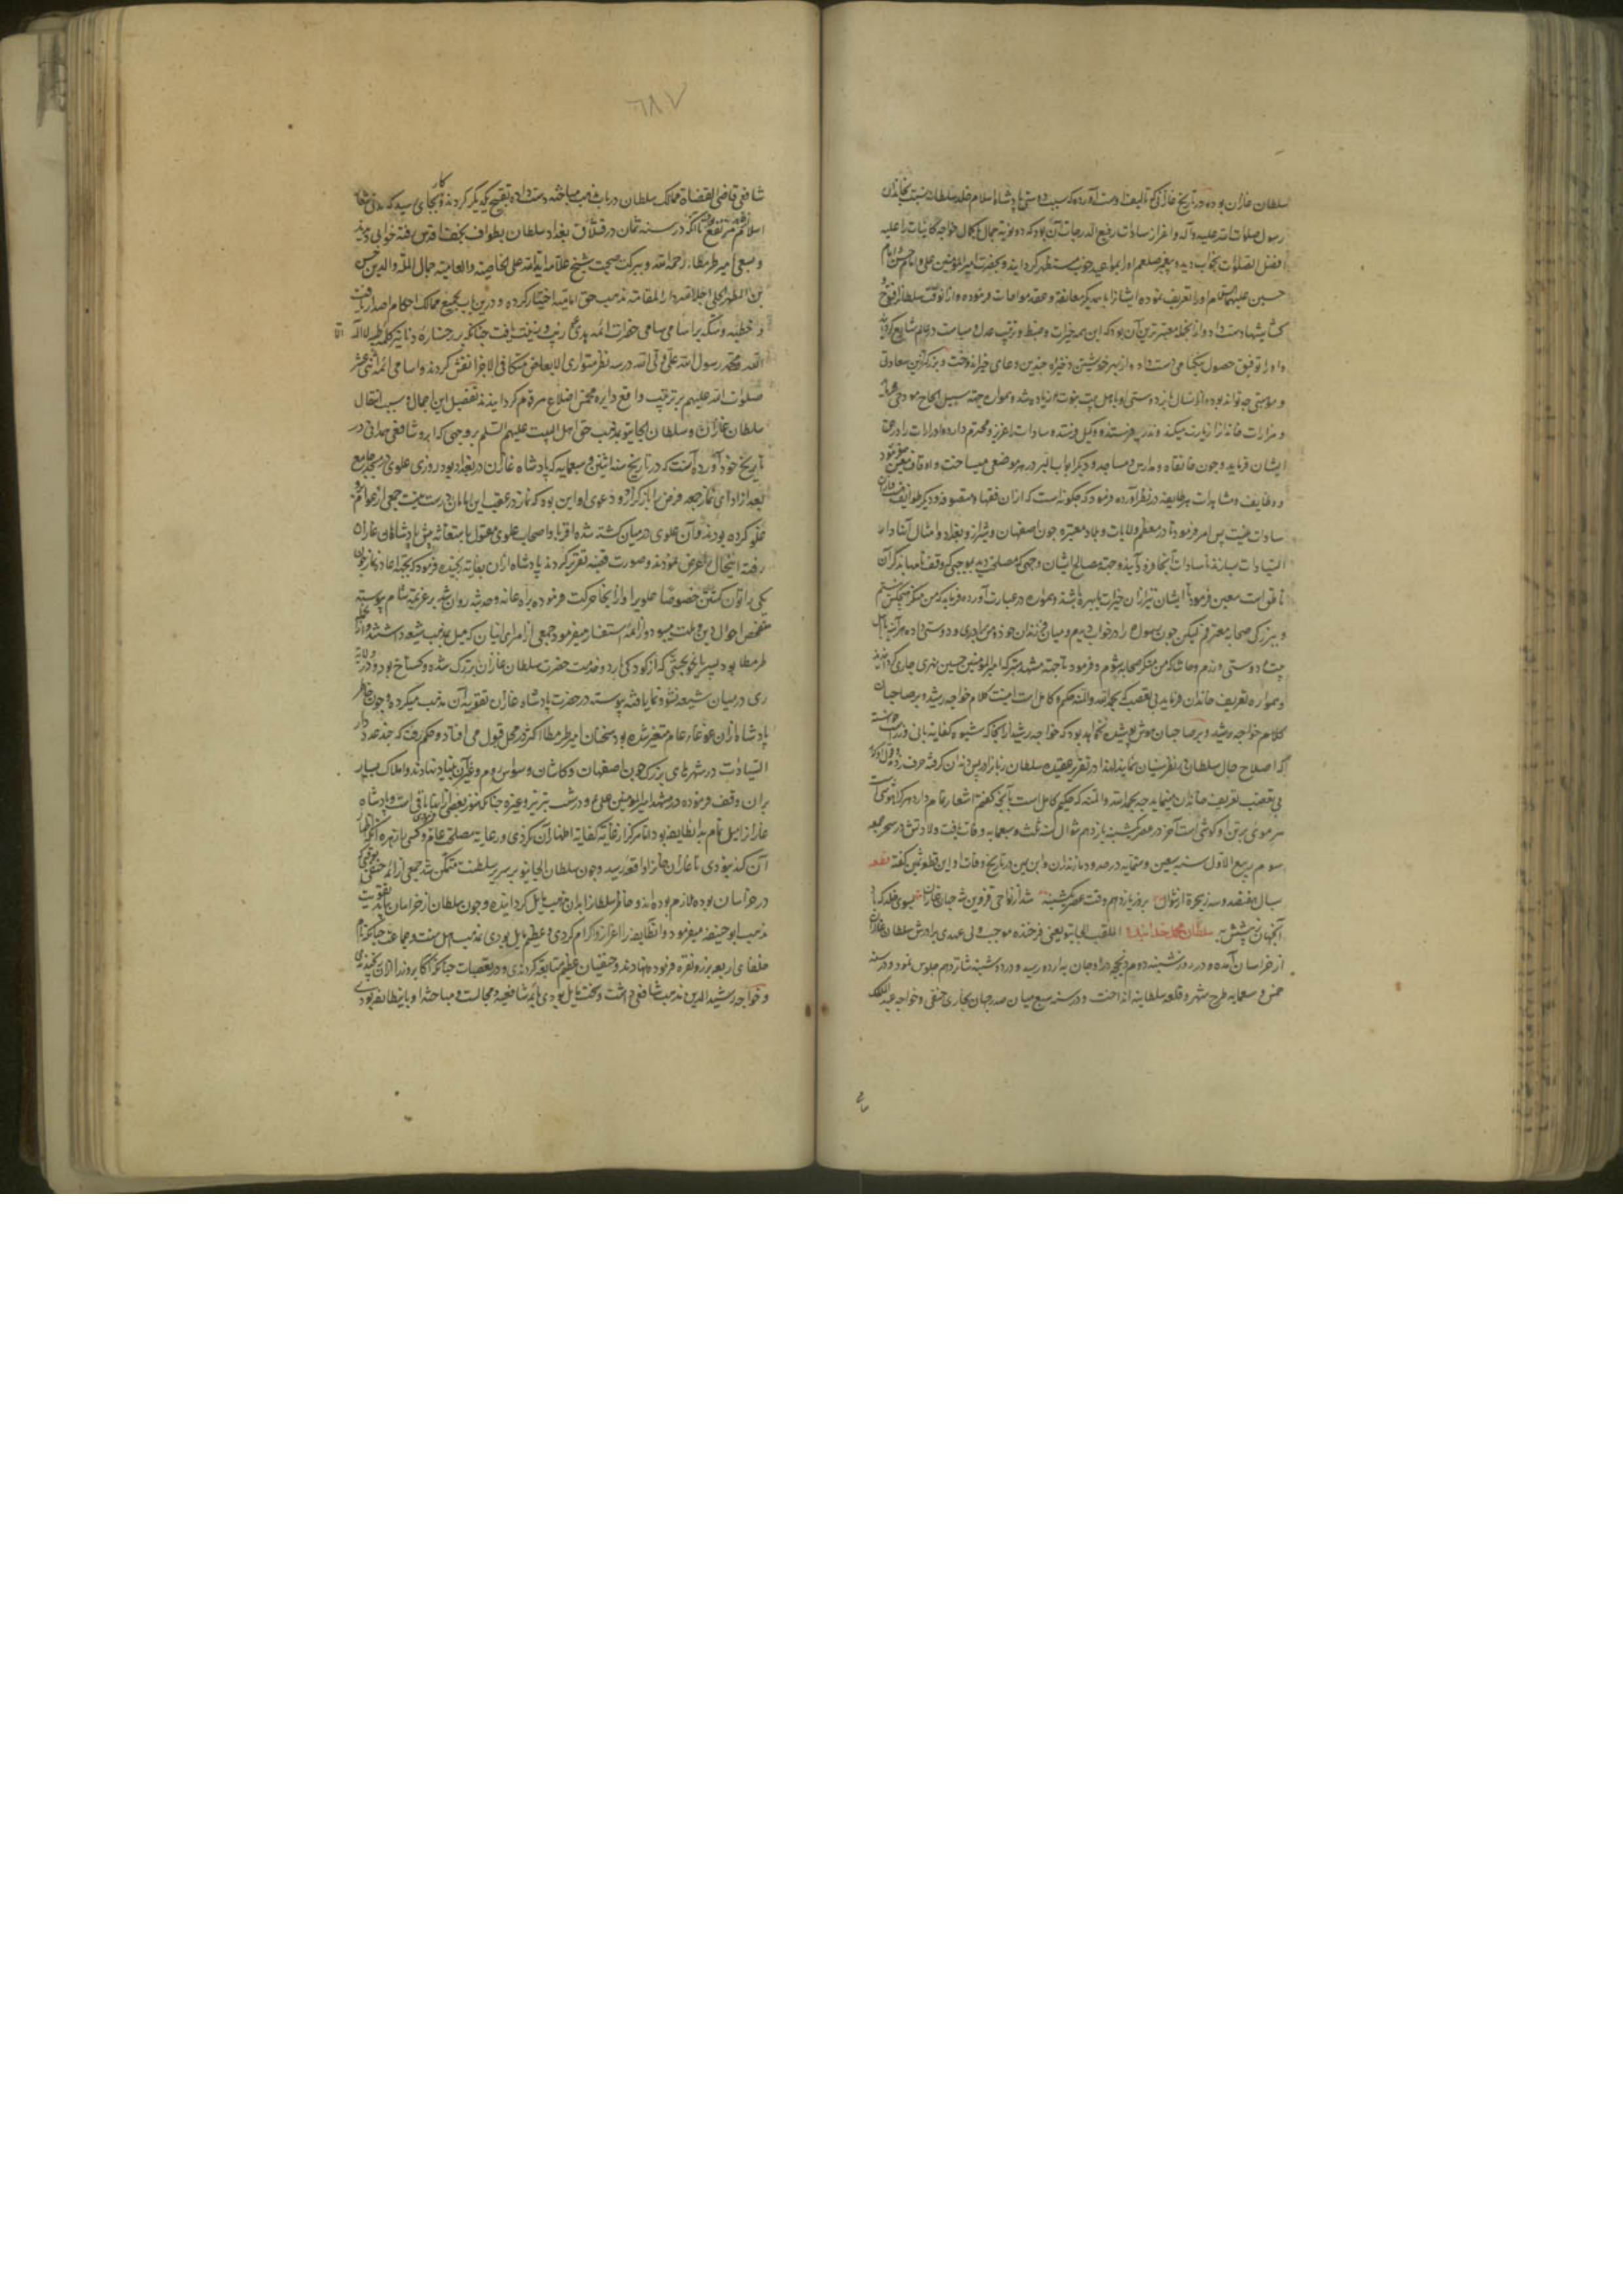 سلطان غازان بوده در تاریخ غازانی که تالیف اوست آورده که سبب دوستی پادشاه اسلام خلد سلطانه نسبت بخاندان
رسول صلوات الله علیه و آله و اعزاز سادات رفیع الدرجات آن بود که دو نوبت جمال با کمال خواجه کاینات را علیه
افضل الصلوات بخواب دیده و پیغمبر صلعم او را بمواعید خوب مستظهر کردانیده و بحضرت امیر المؤمنین علی و امام حسن و امام
حسین علیهم السلام او را تعریف نموده ایشانرا با یکدیکر معانقه و عقد مواخات فرموده و از آن وقت سلطانرا فتوح و
کشایشها دست داد و از آنجمله معتبرترین آن بود که این همه خیرات و ضبط و ترتیب عدل و سیاست در عالم شایع کردانید
و او را توفیق حصول نیکنامی دست داده از بهر خویشتن ذخیره چندین دعای خیر اندوخت و بزرکترین سعادتی
و موهبتی چه تواند بود
و مزارات خاندانرا زیارت میکند و نذر میفرستد و سادات را عزیز و محترم دارد و ادرارات را در حق
ایشان فرماید و چون خانقاه و مدارس و مساجد و دیکر ابواب البر در هر موضعی میساخت و اوقاف معین میفرمود
و وظایف و مشاهرات هر طایفه در نظر آورده فرمود که چکونه است که از آن فقها و متصوفه و دیکر طوایف هست و از آن
سادات نیست پس امر فرمود تا در معظم ولایات و بلاد معتبره چون اصفهان و شیراز و بغداد و امثال آنها دار
السیادات بسازند تا سادات آنجا فرود آیند و جهت مصالح ایشان وجهی که مصلحت دید بموجبی که وقفنامها بذکر آن
ناطق است معین فرمود تا ایشان نیز از آن خیرات با بهره باشند و همواره در عبارت آورده فرماید که من منکر هیچکس نیستم
و ببزرکی صحابه معترفم لیکن چون رسول را در خواب دیدم و میان فرزندان خود و من برادری و دوستی داده هر آینه با اهل
بیت دوستی ورزم و حاشا که من منکر صحابه شوم و فرمود تا جهت مشهد متبرکه امیر المؤمنین حسین نهری جاری کردانیدند
و همواره تعریف خاندان فرماید بی تعصب که بحمد الله و المنه حکیم و کامل است اینست کلام خواجه رشید و بر صاحبان
کلام خواجه رشید و بر صاحبان هوش پوشیده نخواهد بود که خواجه رشید از آنجا که شیوه
که اصلاح حال سلطان در نظر سنیان نماید لهذا در تقریر عقیده سلطان
بی تعصب تعریف خاندان مینماید چه بحمد الله و المنه که حکیم کامل است بآنچه کفتم اشعار تمام دارد
هر موی بر تن او کوشی است آخر در عصر یکشنبه یازدهم شوال سنه ثلث و سبعمایه وفات یافت ولادتش در سحر جمعه
سوم ربیع الاول سنه سبعین و ستمایه در حدود مازندران و ابن یمین در تاریخ وفات او این قطعه کفته قطعه
بسال هفتصد و سه ز هجرة از شوال بروز یازدهم وقت عصر یکشنبه شد از نواحی قزوین شه جهان غازان بسوی خلد که باد
آنجهان پیشش به سلطان محمد خدابنده الملقب الجایتو یعنی فرخنده بموجب ولی عهدی برادرش سلطان غازان
از خراسان آمده و در روز شنبه دوم ذیحجه در اوجان به اردو رسید و در دوشنبه شانزدهم جلوس نمود و در سنه
خمس و سبعمایه طرح شهر و قلعه سلطانیه انداخت و در سنه سبع میان صدر جهان بخاری حنفی و خواجه عبد الملک
۶۸۷
شافعی قاضی القضاة ممالک سلطان در باب مذهب مباحثه دست داده تقبیح یکدیکر کردند و کار بجای رسید که
اسلام مرتفع شود تا آنکه در سنه ثمان در قشلاق بغداد سلطان بطواف نجف اقدس رفته خوابی دید
و بسعی امیر طرمطاز رحمه الله و ببرکت صحبت شیخ علامه آیة الله علی الخاصة و العامة جمال الملة و الدین حسن
بن المطهر الحلی احله الله دار المقامة مذهب حق امامیه اختیار کرده و درین باب بجمیع ممالک احکام اصدار یافت
و خطبه و سکه بر اسامی سامی حضرات ائمه هدی ع زیب و زینت یافت چنانکه بر رخساره دنانیر کلمه طیبه لا اله الا
الله محمد رسول الله علی ولی الله در سه سطر متوازی الابعاض متکافی الاجزا نقش کردند و اسامی ائمه اثنی عشر
صلوات الله علیهم بر ترتیب واقع دایره مخمس اضلاع مرقوم کردانیدند تفصیل این اجمال و سبب انتقال
سلطان غازان و سلطان الجایتو بمذهب حق اهل البیت علیهم السلم بر وجهی که ابرو شافعی همدانی در
تاریخ خود آورده آنست که در تاریخ سنه اثنین و سبعمایه که پادشاه غازان در بغداد بود روزی علوی در مسجد جامع
بعد از ادای نماز جمعه فرض را باز کزارد و دعوی او این بود که نماز در عقب این امامان درست نیست جمعی از عوام
غلو کرده بودند و آن علوی در میان کشته شده اقربا و اصحاب علوی مقتول باستغاثه پیش پادشاه غازان
رفته این حال را عرض نمودند و صورت قضیه تقریر کردند پادشاه از آن بغایت برنجیده فرمود که بجهت اعاده نماز چون
یکی را توان کشتن خصوصا علوی را و از آنجا حرکت فرموده براه عانه و حدیثه روان شد بر عزیمت شام پیوسته
متفحص احوال دین و ملت میبود و از ائمه استفسار میفرمود جمعی از امرای ایشان که میل بمذهب شیعه داشتند
طرمطاز بود پسر بایجو بخشی که از کودکی باز در خدمت حضرت سلطان غازان بزرک شده و کستاخ بود و در ولایت
ری در میان شیعه نشو و نما یافته پیوسته در حضرت پادشاه غازان تقویت آن مذهب میکرد و چون خاطر
پادشاه از آن غوغاء عام متغیر شده بود سخنان امیر طرمطاز اکثر در محل قبول می افتاد و حکم رفت که چند عدد دار
السیادات در شهرهای بزرک چون اصفهان و کاشان و سیواس روم و غیر آن بنیاد نهادند و املاک بسیار
بر آن وقف فرموده در مشهد امیر المؤمنین علی ع و در شنب تبریز و غیره چنانکه هنوز بعضی از آنها باقیست و پادشاه
غازان را میل تمام به آن طایفه بود اما هرکز از غایت کفایت اظهار آن نکردی و رعایت مصلحت عام فرمودی و کسی را زهره آن نبودی که اظهار
آن کند تا غازان خانرا واقعه رسید و چون سلطان الجایتو بر سریر سلطنت متمکن شد جمعی از ائمه حنفی که
در خراسان بوده ملازم بوده اند خاطر سلطانرا بدان مذهب مایل کردانیده و چون سلطان از خراسان بیامد تقویت
مذهب ابو حنیفه میفرمود و آن طایفه را اعزاز و اکرام کردی و عظیم مایل بودی بمذهب اهل سنت و جماعت چنانکه نام
خلفای اربعه بر زر و نقره فرموده نهادند و حنفیان عظیم متابعت کردندی و در تعصبات
و خواجه رشید الدین مذهب شافعی داشت و سخت مایل بودی بائمه شافعیه و مجالست و مباحثه او با این طایفه بودی